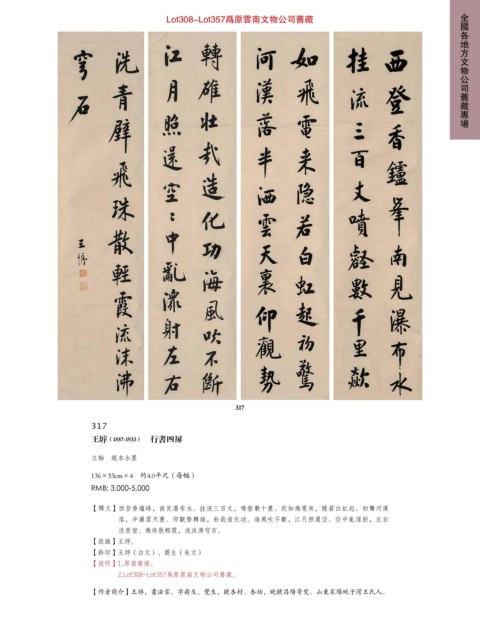 Lot308-Lot357爲原雲南文物公司舊藏
全國各地方文物公司舊藏專場
西登香鑪峯南見瀑布水
挂流三百丈噴壑數千里歘
如飛電来隐若白虹起初驚
河漢落半洒雲天裏仰觀勢
轉雄壮哉造化功海風吹不斷
江月照還空空中亂潈射左右
洗青壁飛珠散輕霞流沫沸
穹石
王垿
317
317
王垿（1857-1933） 行書四屏
立軸 紙本水墨
136×33cm×4 約4.0平尺（每幅）
RMB: 3,000-5,000
【釋文】西登香爐峰，南見瀑布水。挂流三百丈，噴壑數十裏。欻如飛電來，隱若白虹起。初驚河漢
落，半灑雲天裏。仰觀勢轉雄，壯哉造化功。海風吹不斷，江月照還空。空中亂潈射，左右
洗青壁。飛珠散輕霞，流沫沸穹石。
【款識】王垿。
【鈐印】王垿（白文）、爵生（朱文）
【說明】1.原裝舊裱。
2.Lot308-Lot357爲原雲南文物公司舊藏。
【作者簡介】王垿，書法家。字爵生、覺生，號杏村、杏坊，晚號昌陽寄叟。山東萊陽姚子灣王氏人。